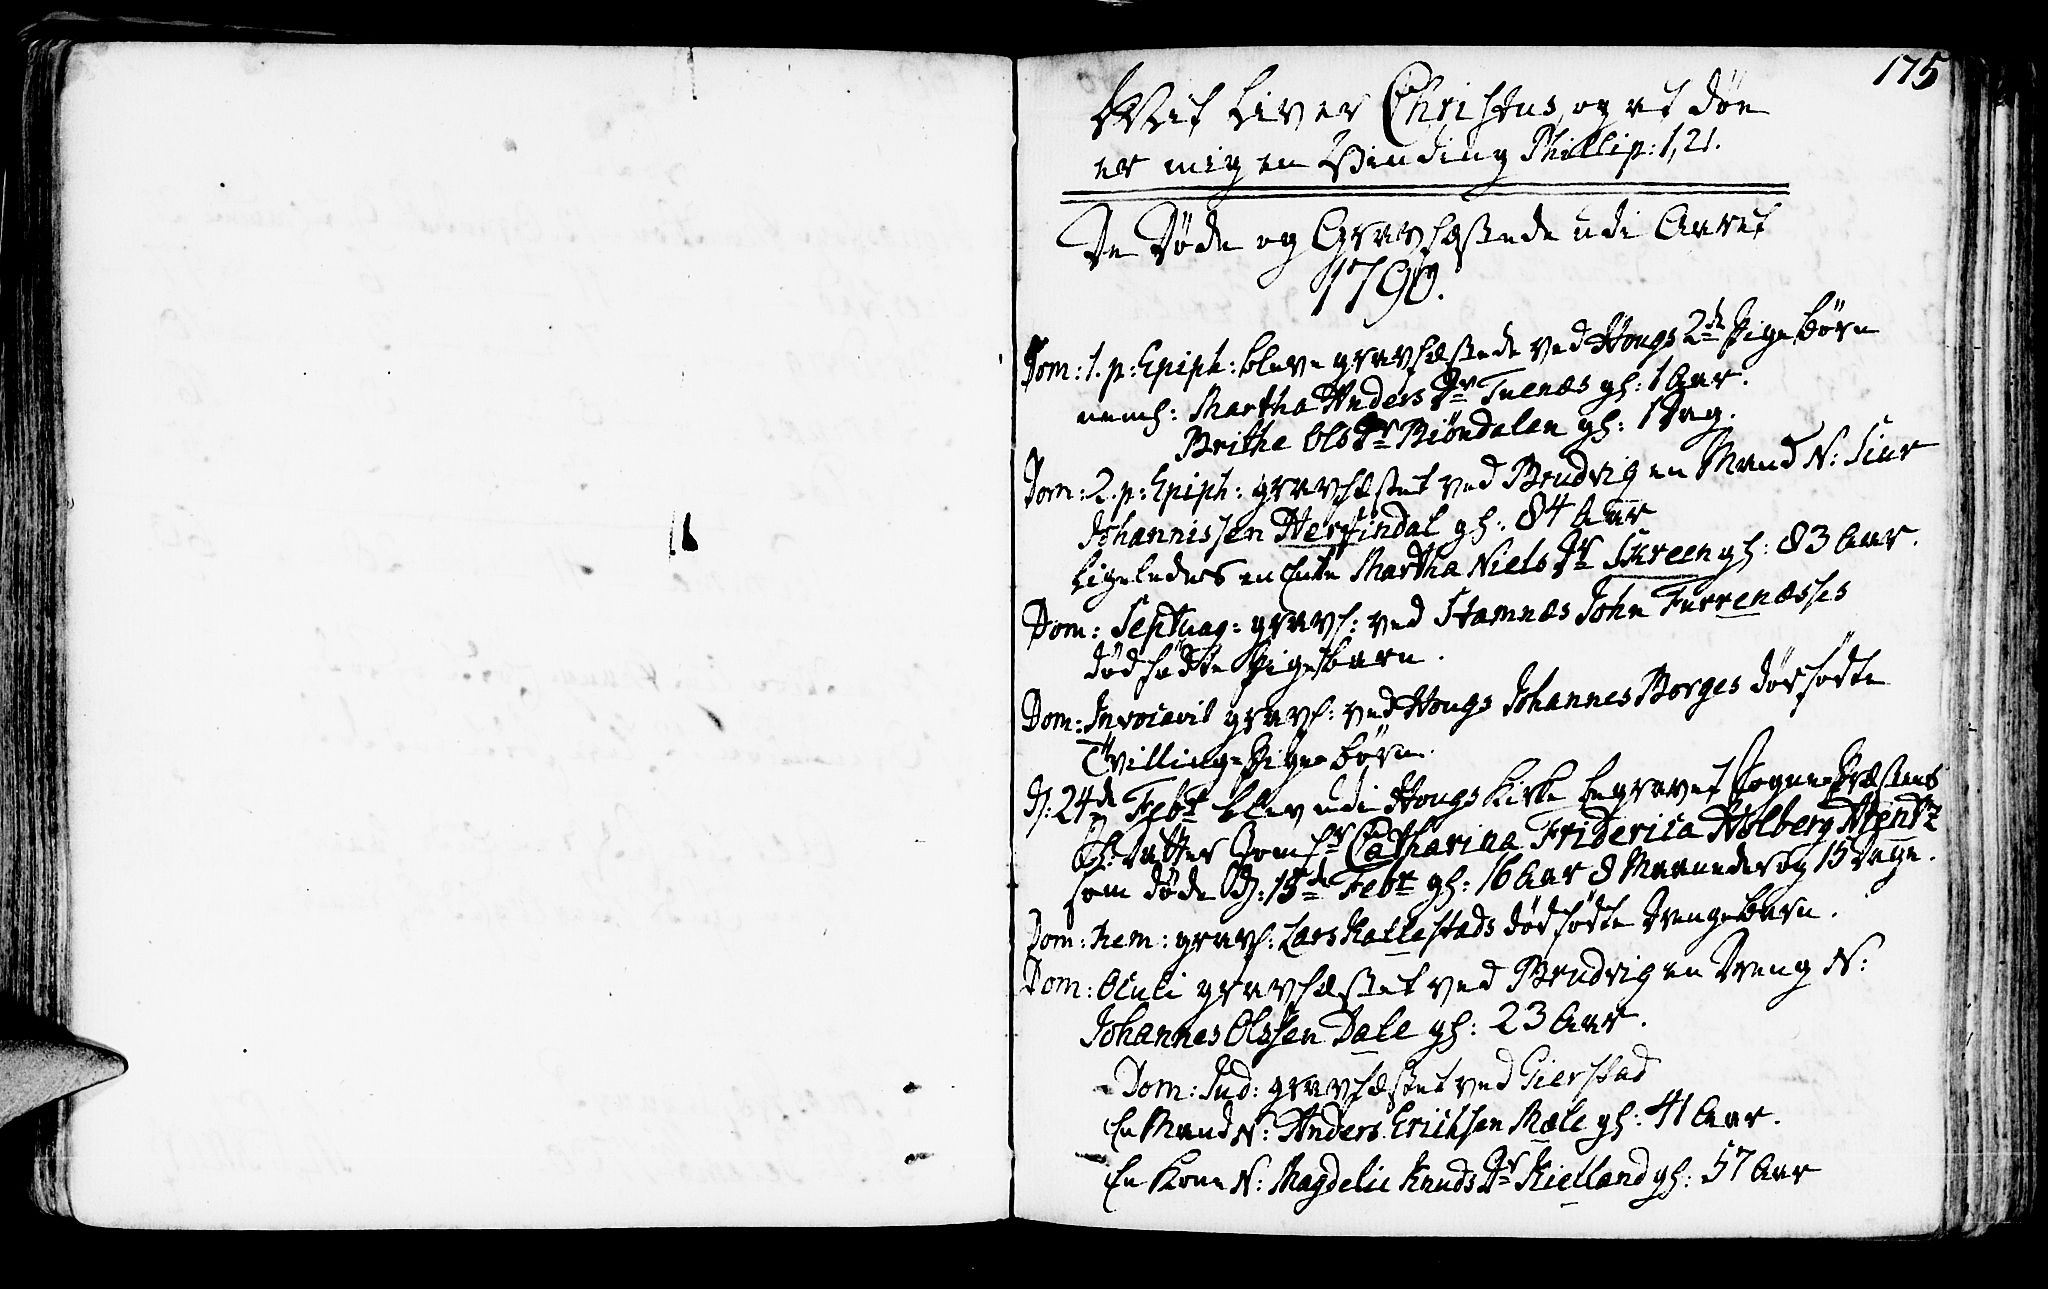 175
Mit Liv er Christus, og at døe
er mig en Vinding Phillip: 1,21.
De Døde og Gravfæstede udi Aaret
1790.
Dom: 1. p: Epiph: bleve gravfæstede ved Hougs 2de Pigebørn
neml: Martha Anders Dr Tuenæs gl: 1 Aar.
Brithe Ols Dr Biøndalen gl: 1 Dag.
Dom: 2. p: Epiph: gravfæstet ved Brudvig en Mand N: Siur
Johannissen Herfindal gl: 84 Aar
Ligeledes en Enke Martha Niels Dr Skreen gl: 83 Aar.
Dom: Septuag: gravf: ved Stamnæs John Furrenæsses
dødfødte Pigebarn.
Dom: Invocavit gravf: ved Hougs Johannes Borges dødfødte
Tvilling-Pigebørn.
D: 24de Febr blev udi Hougs Kirke begravet Sogne Præstens
Datter Jomfr Catharina Friderica Holberg Mentz
som døde d: 15de Febr gl: 16 Aar 8 Maaneder og 15 Dage.
Dom: Rem: gravf: Lars Kallestads dødfødte Drengebarn.
Dom: Oculi gravfæstet ved Brudvig en Dreng N:
Johannes Olssen Dale gl: 23 Aar.
Dom: Jud: gravfæstet ved Gierstad
En Mand N: Anders Erichsen Mæle gl: 41 Aar.
En Kone N: Magdelie Knuds Dr Kielland gl: 57 Aar